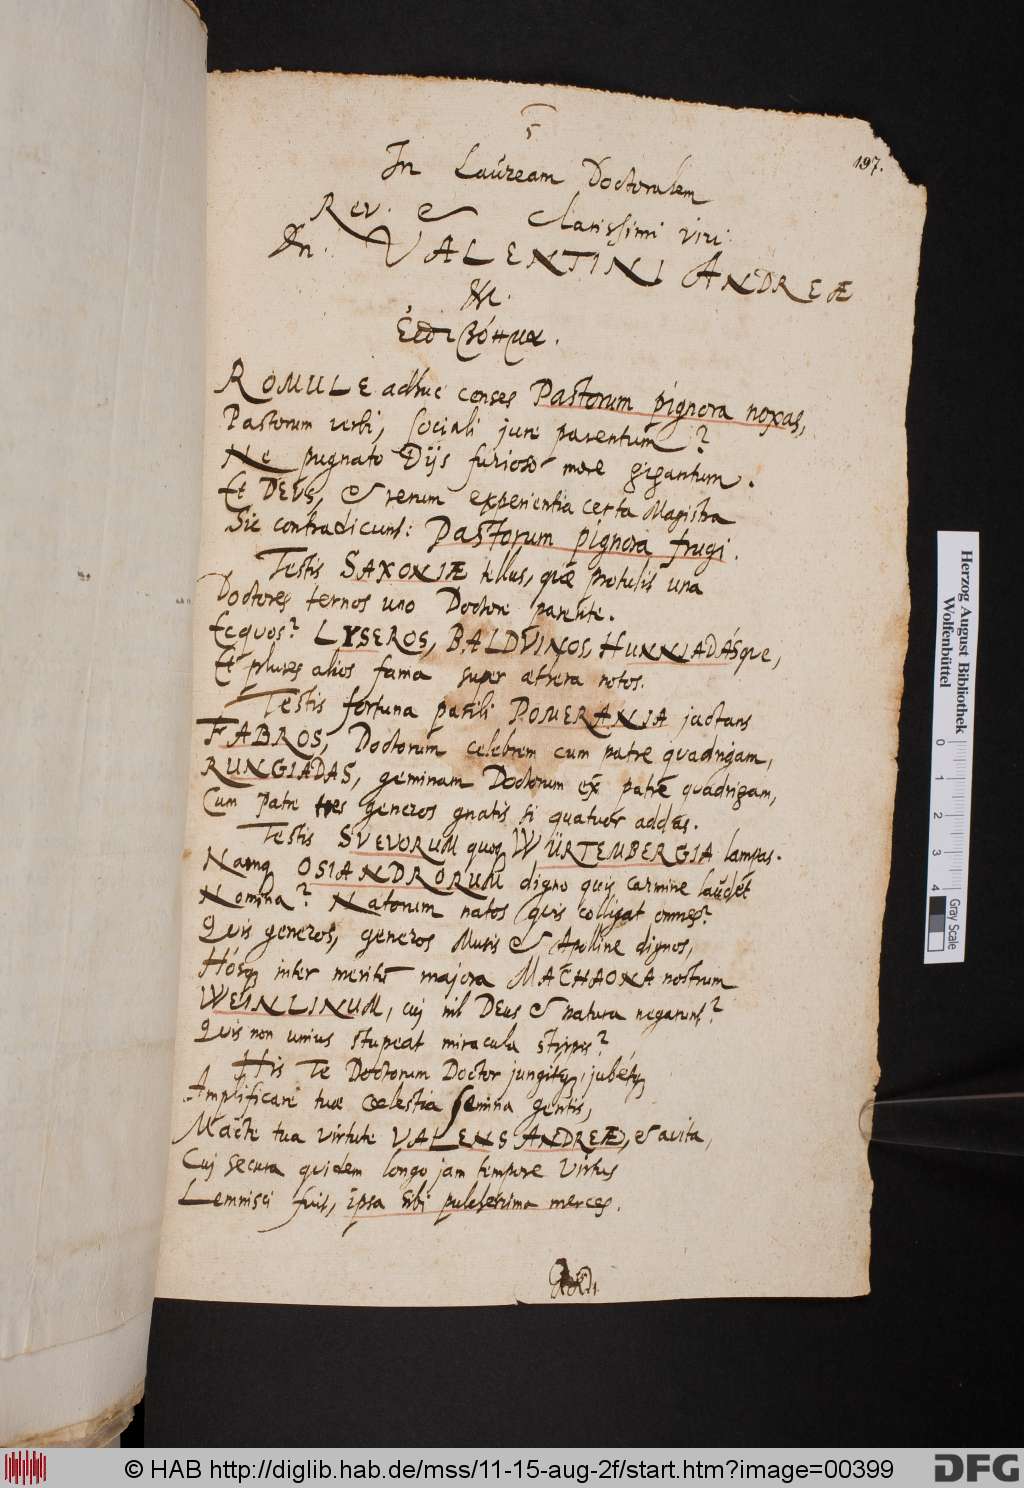 5
197.
In Lauream Doctoralem
Rev. & Clarissimi viri
Dn. VALENTINI ANDREÆ
ROMULE adhuc censes Pastorum pignora noxas,
Pastorum verbi, sociali jure parentum?
Ne pugnato Dijs furioso more gigantum.
Et DEUS, & rerum experientia certa Magistra
Sic contradicunt: Pastorum pignora frugi.
Testis SAXONIÆ tellus, quæ protulit una
Doctores ternos uno Doctore parente.
Ecquos? LYSEROS, BALDVINOS, HUNNIADÁSque,
Et plures alios fama super æthera notos.
Testis fortuna parili POMERANIA jactans
FABROS, Doctorum celebrem cum patre quadrigam,
RUNGIADAS, geminam Doctorum ex patre quadrigam,
Cum patre tres generos gnatis si quatuor addas.
Testis SVEVORUM quoq WÜRTEMBERGIA lampas.
Namq OSIANDRORUM digno quis carmine laudet
Nomina? Natorum natos quis colligat omnes?
Quis generos, generos Musis & Apolline dignos,
Hósq inter meritis majora MACHAONA nostrum
WEINLINUM, cuj nil Deus & natura negarunt?
Quis non unius stupeat miracula stirpis?
His Te Doctorum Doctor jungitq, jubetq
Amplificare tuæ cœlestia semina gentis,
Macte tua virtute VALENS ANDREÆ, & avita,
Cuj secura quidem longo jam tempore virtus
Lemnisci fuit, ipsa sibi pulcherrima merces.
Herzog August Bibliothek
Wolfenbüttel
0 1 2 3 4
Gray Scale
© HAB http://diglib.hab.de/mss/11-15-aug-2f/start.htm?image=00399
DFG